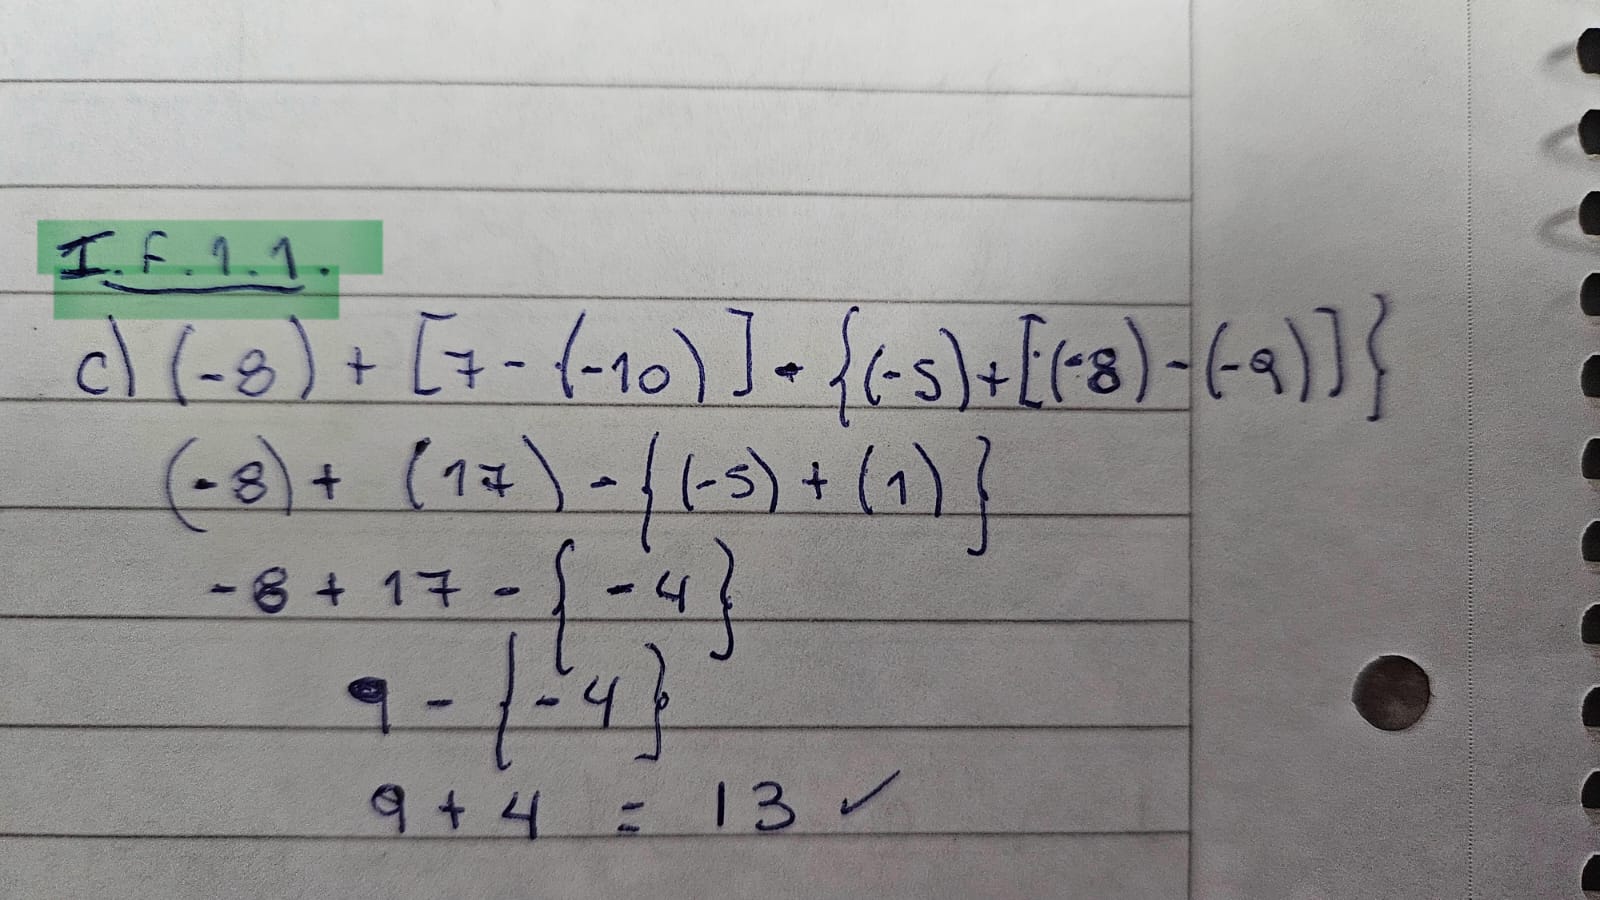 I.F.1.1.
c) (-8) + [7-(-10)] - {(-5)+[(-8)-(-9)]}
(-8) + (17) - {(-5) + (1)}
-8 + 17 - {-4}
9 - {-4}
9 + 4 = 13 ✓